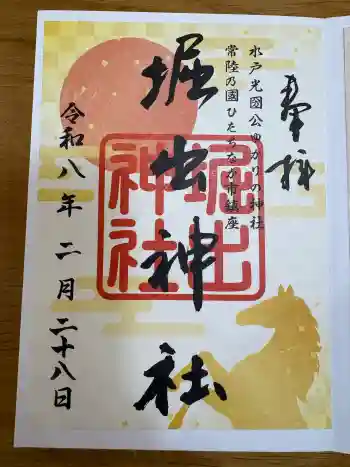 奉拝
水戸光圀公ゆかりの神社
常陸乃國ひたちなか市鎮座
堀出神社
堀出神社
令和八年二月二十八日